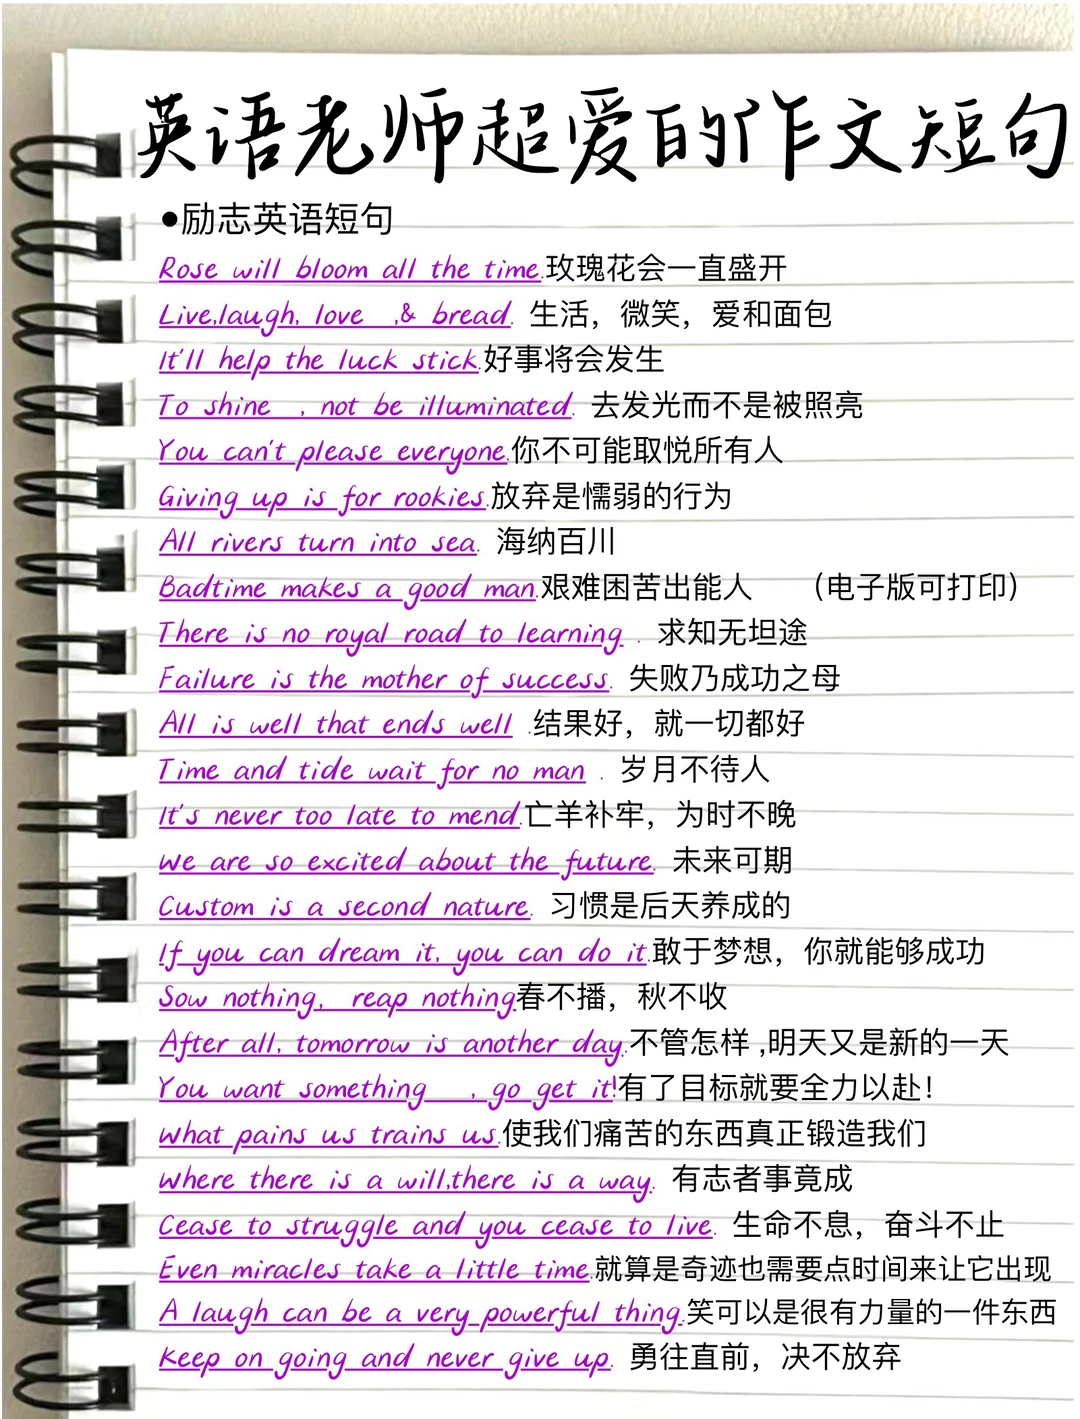 英语老师超爱的作文短句
●励志英语短句
Rose will bloom all the time.玫瑰花会一直盛开
Live,laugh, love ,& bread. 生活，微笑，爱和面包
It'll help the luck stick.好事将会发生
To shine , not be illuminated. 去发光而不是被照亮
You can't please everyone.你不可能取悦所有人
Giving up is for rookies.放弃是懦弱的行为
All rivers turn into sea. 海纳百川
Badtime makes a good man.艰难困苦出能人 （电子版可打印）
There is no royal road to learning . 求知无坦途
Failure is the mother of success. 失败乃成功之母
All is well that ends well .结果好，就一切都好
Time and tide wait for no man . 岁月不待人
It's never too late to mend.亡羊补牢，为时不晚
We are so excited about the future. 未来可期
Custom is a second nature. 习惯是后天养成的
If you can dream it, you can do it.敢于梦想，你就能够成功
Sow nothing, reap nothing春不播，秋不收
After all, tomorrow is another day.不管怎样 ,明天又是新的一天
You want something , go get it!有了目标就要全力以赴！
What pains us trains us.使我们痛苦的东西真正锻造我们
Where there is a will,there is a way. 有志者事竟成
Cease to struggle and you cease to live. 生命不息，奋斗不止
Even miracles take a little time.就算是奇迹也需要点时间来让它出现
A laugh can be a very powerful thing.笑可以是很有力量的一件东西
Keep on going and never give up. 勇往直前，决不放弃